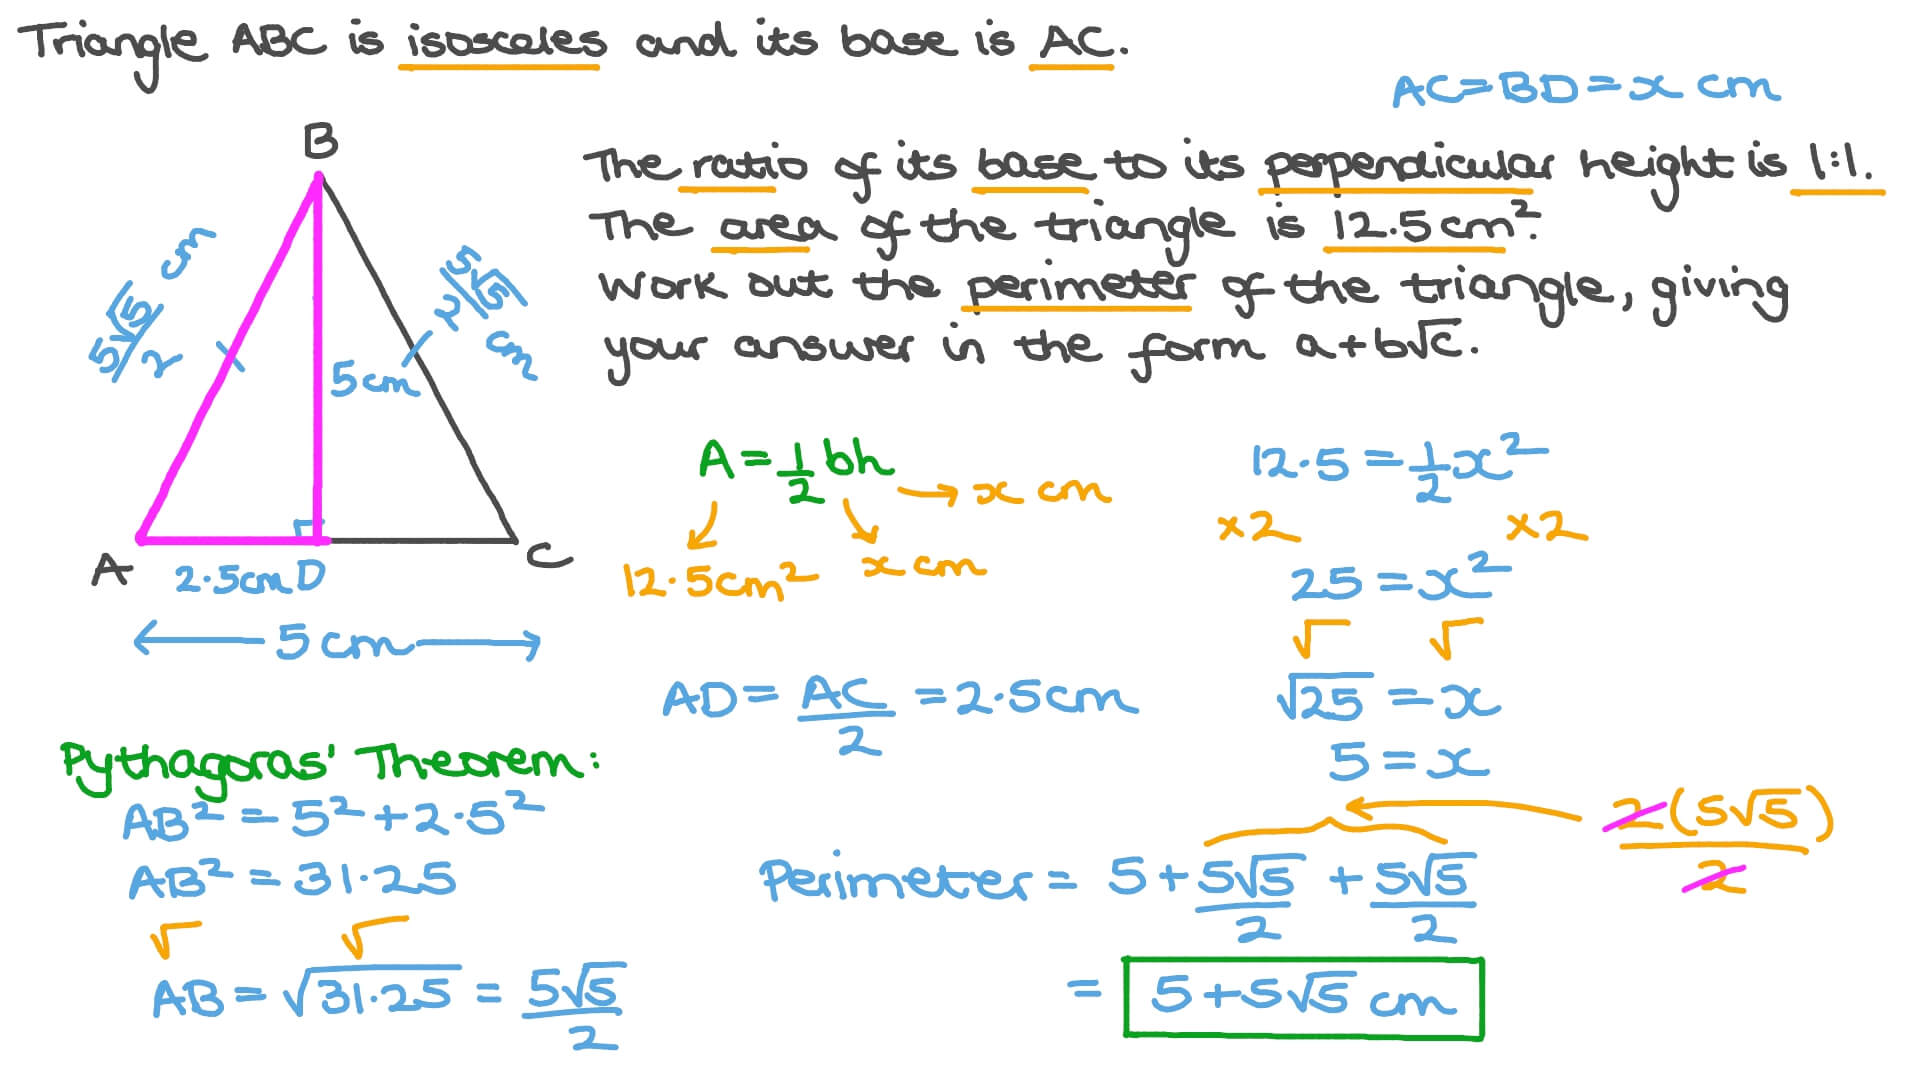 Triangle ABC is isosceles and its base is AC.
AC=BD=x cm
The ratio of its base to its perpendicular height is 1:1.
The area of the triangle is 12.5cm².
Work out the perimeter of the triangle, giving
your answer in the form a+b√c.
B
5√5/2 cm
5√5/2 cm
5cm
A
C
2.5cm D
5cm
A=1/2bh
→ x cm
12.5cm²
x cm
12.5=1/2x²
×2 ×2
25=x²
√ √
√25=x
5=x
AD=AC/2=2.5cm
Pythagoras' Theorem:
AB²=5²+2.5²
AB²=31.25
√ √
AB=√31.25=5√5/2
2(5√5)/2
Perimeter=5+5√5/2+5√5/2
=5+5√5 cm